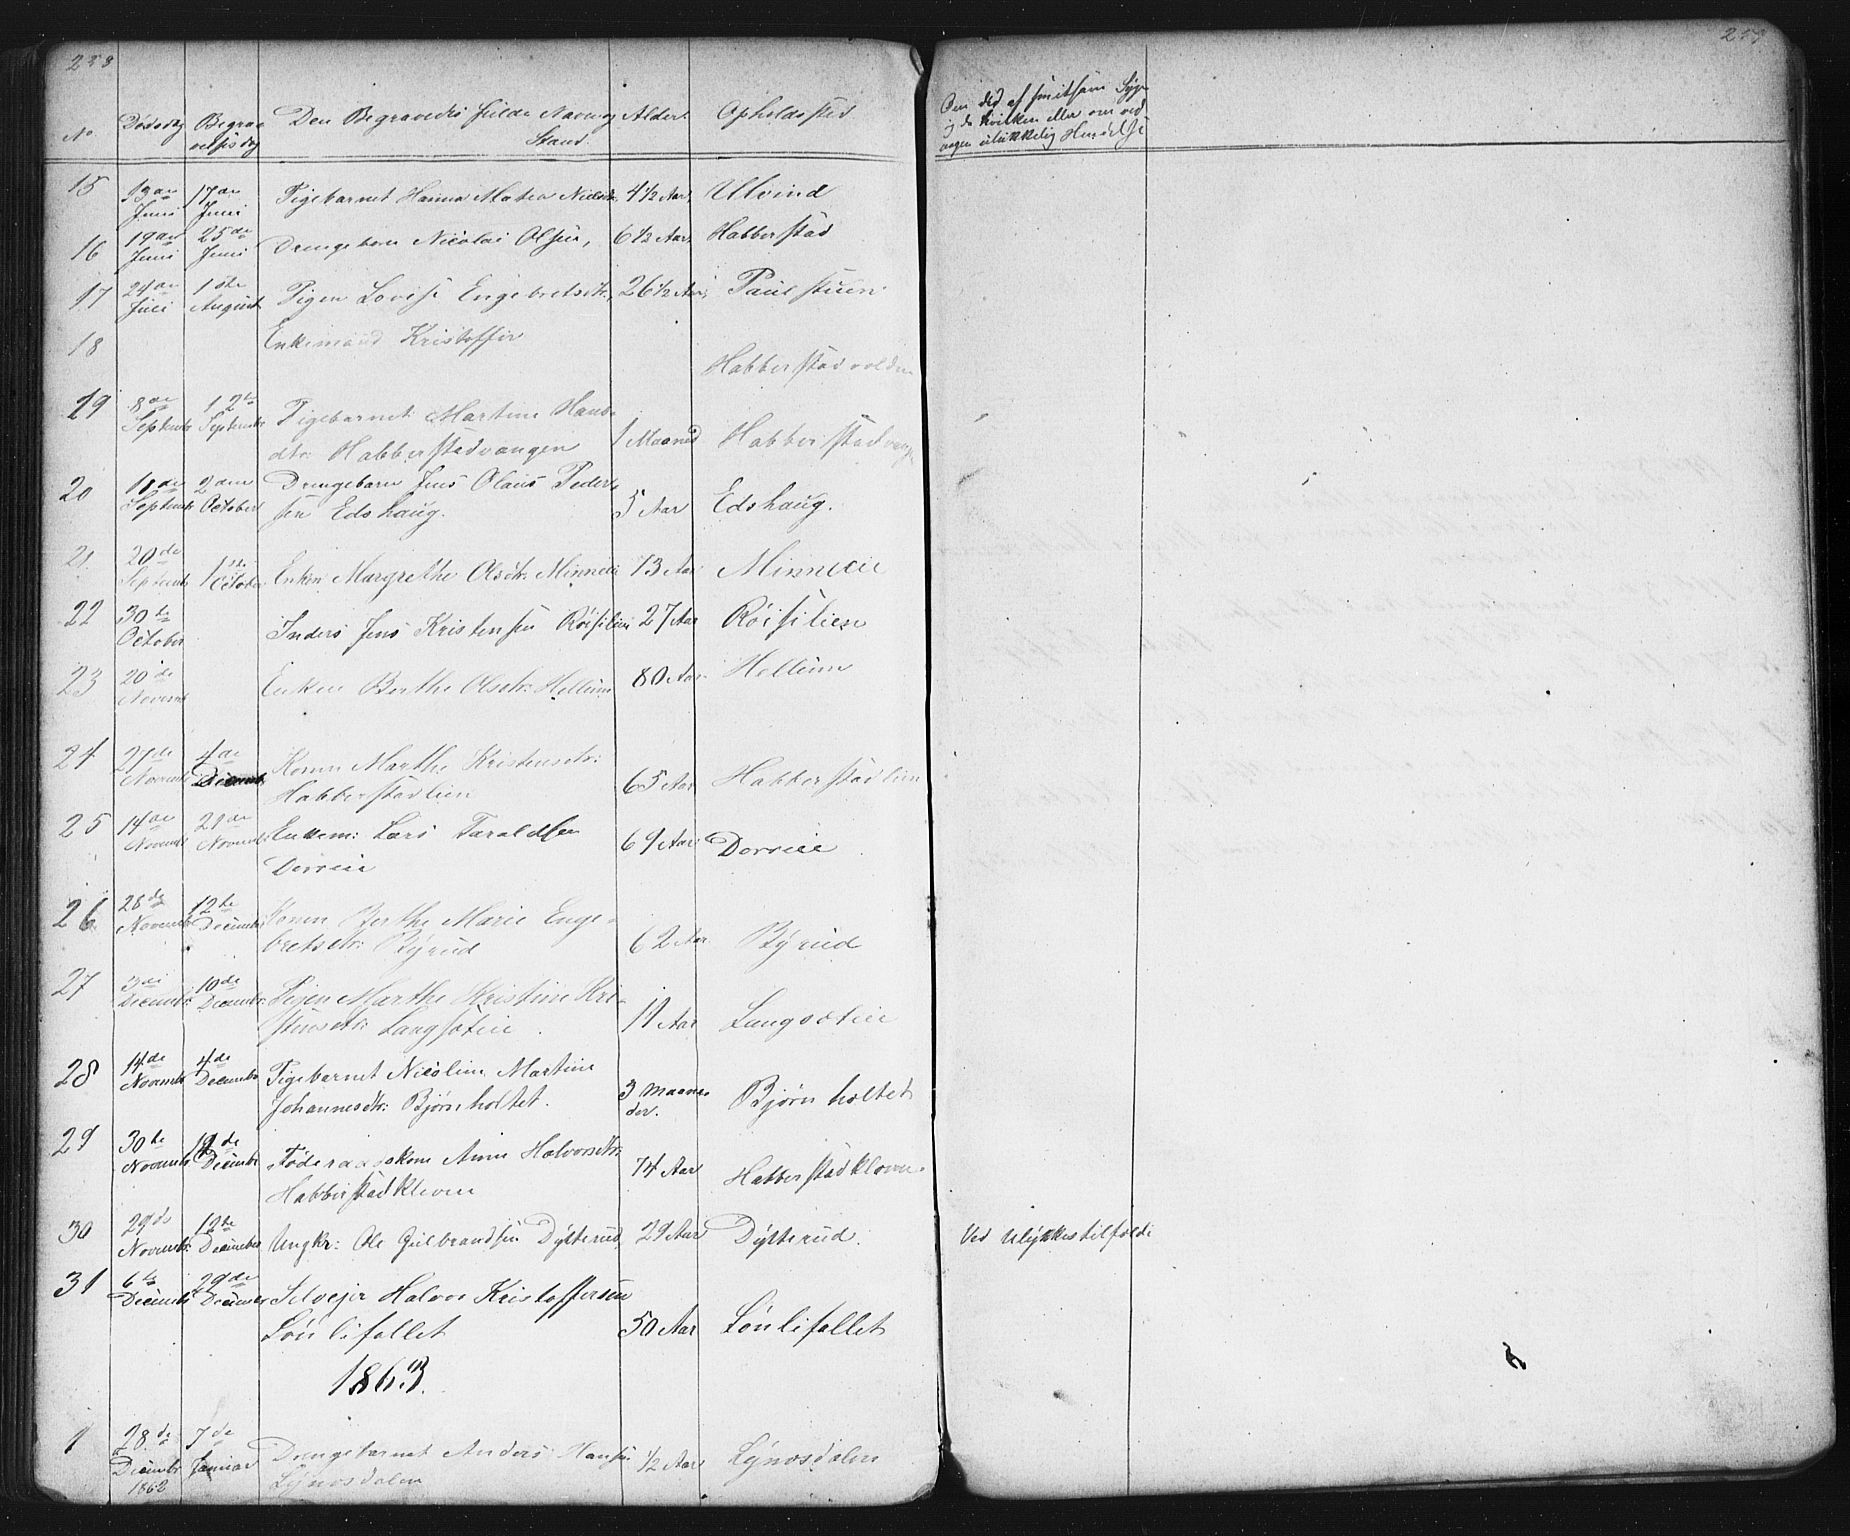 238
No. Dødsdag Begravelsesdag Den Begravedes fulde Navn og Stand. Alder. Opholdssted
15 13de Juni 17de Juni Pigebarnet Hanna Matea Nielsdtr. 4 1/2 Aar Ulvind
16 19de Juni 25de Juni Drengebarn Nicolai Olsen, 6 1/2 Aar Habberstad
17 24de Juli 1ste August Pigen Lovise Engebretsdtr. 26 1/2 Aar, Paulstuen
18 Enkemand Kristoffer
Habberstadvolden
19 8de Septembr 12te Septembr Pigebarnet Martine Hans-
dtr. Habberstadvangen 1 Maaned Habberstadvangen
20 Septembr 2den October Drengebarn Jens Olaus Peder-
sen Edshaug. 5 Aar Edshaug.
21. 20de Septembr 1ste October Enken Margrethe Olsdtr. Minneeie 73 Aar Minneeie
22 30te October Inders Jens Kristensen Röisilien 27 Aar Röisilien
23 20de Novemb Enken Berthe Olsdtr: Hellum 80 Aar. Hellum
24 27de Novembr 4de Decembr Konen Marthe Kristensdtr:
Habberstadlien 65 Aar Habberstadlien
25 14de Novembr 21de Novembr Enkem: Lars Taraldsen
Dorreie 69 Aar Dorreie
26 28de Novembr 12te Decembr Konen Berthe Marie Enge-
bretsdtr: Byrud 62 Aar Byrud
27 3die Decembr 10de Decembr Pigen Marthe Kristine Kri-
stensdtr: Langsöteie. 11 Aar Langsöteie
28 14de Novembr 4de Decembr Pigebarnet Nicoline Martine
Johannesdtr: Bjørnholtet. 3 Maane-
der. Bjørnholtet
29 30te Novembr Decembr Föderaadskone Anne Halvorsdtr:
Habberstadkleven 74 Aar Habberstadkleven.
30 29de Novembr: 12te Decembr Ungkr: Ole Gulbrandsen Dytterud, 29 Aar Dytterud.
31 6te Decembr 29de Decembr Selvejer Halvor Kristoffersen
Sönlifallet 50 Aar Sönlifallet
1863.
1 28de Decembr 1862 7de Januar Drengebarnet Anders Hansen
Lynosdalen 1/2 Aar Lynosdalen
259
Om død af smitsom Syge
og da hvilken eller om ved
nogen ulükkelig Hændelse
Ved Ulykkestilfælde